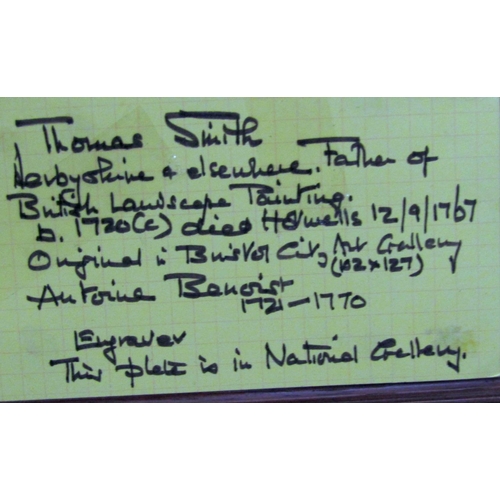 Thomas Smith
Derbyshire & elsewhere. Father of
British Landscape Painting.
b. 1720(c) died Hotwells 12/9/1767
Original in Bristol City Art Gallery
(102 x 127)
Antoine Benoist
1721 — 1770
Engraver
This plate is in National Gallery.